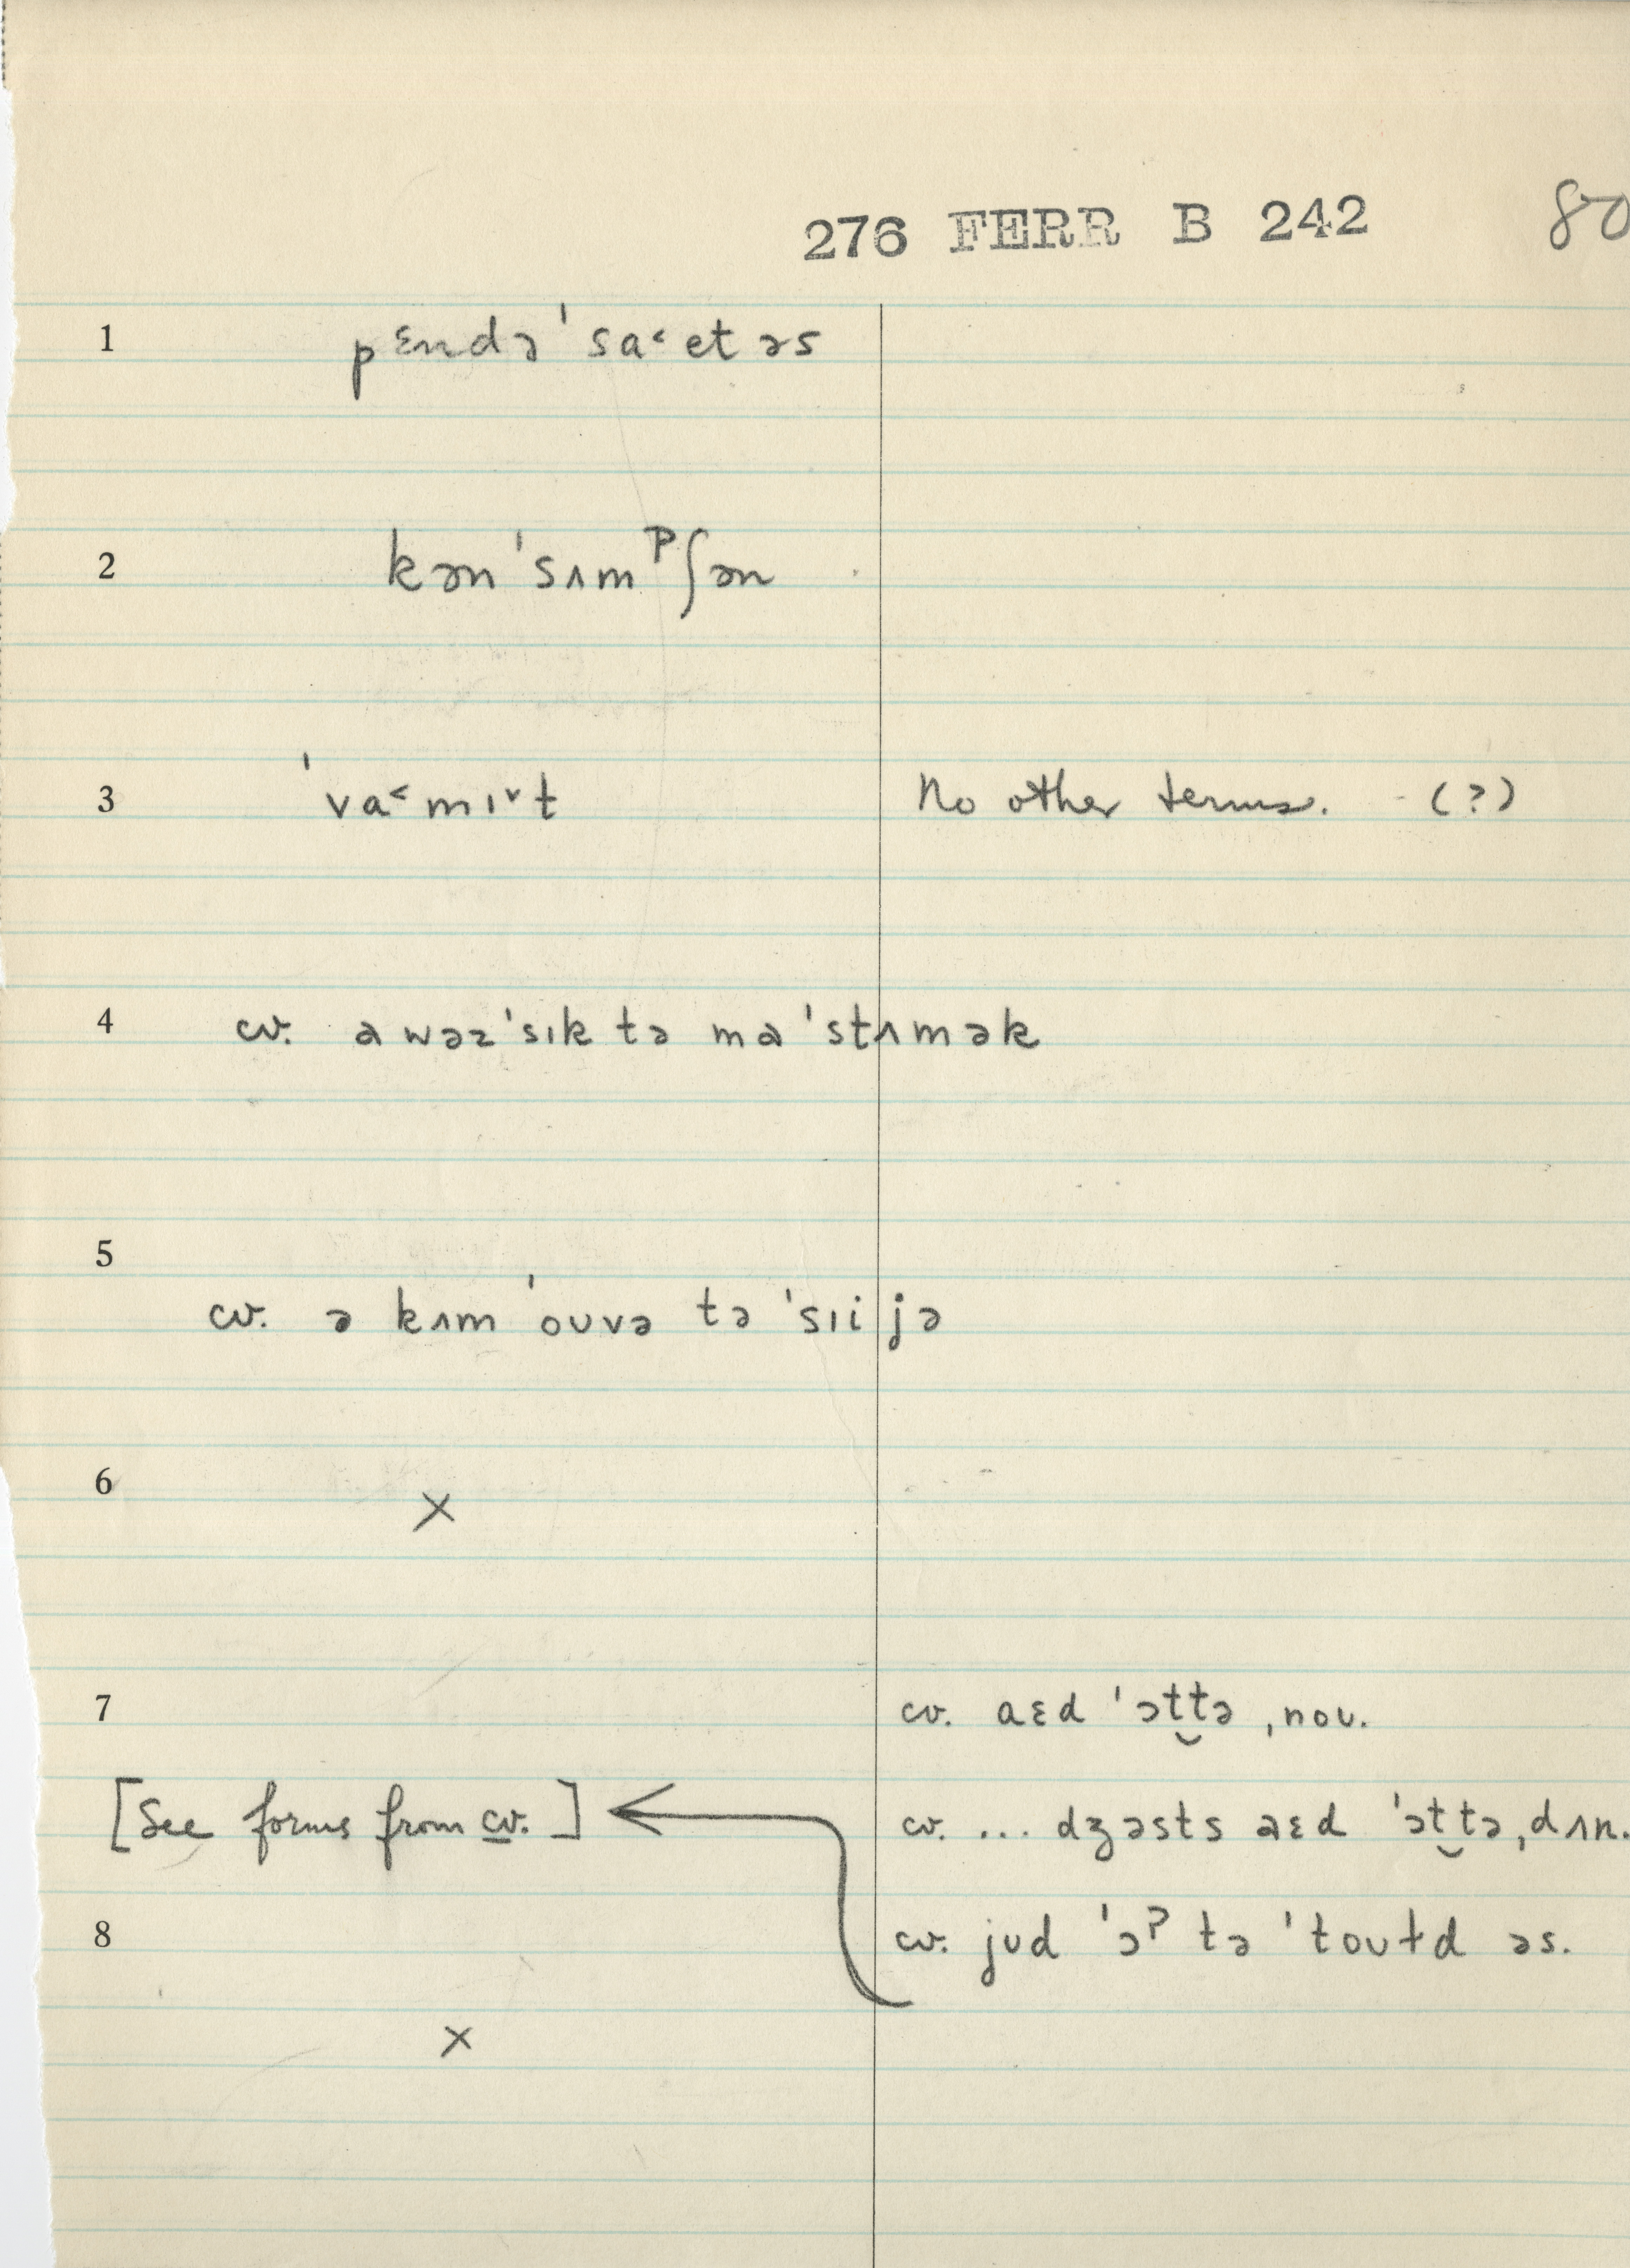 276 FERR B 242 80
1 pɛndə ˈsa˂etəs
2 kənˈsʌmᵖʃən
3 ˈva˂mɪ˅t No other terms. (?)
4 cv. a wəzˈsɪk tə maˈstʌmək
5
cv. ə kʌm ˈoʊvə tə ˈsɪijə
6 ×
7 cv. aɛd ˈɔt̬tə, noʊ.
[See forms from cv.] cv. ... dʒəsts aɛd ˈɔt̬tə, dʌn.
8 cv. jʊd ˈɔʔ tə ˈtoʊɫd əs.
×